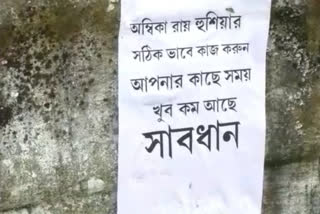 অম্বিকা রায় হুশিয়ার
সঠিক ভাবে কাজ করুন
আপনার কাছে সময়
খুব কম আছে
সাবধান